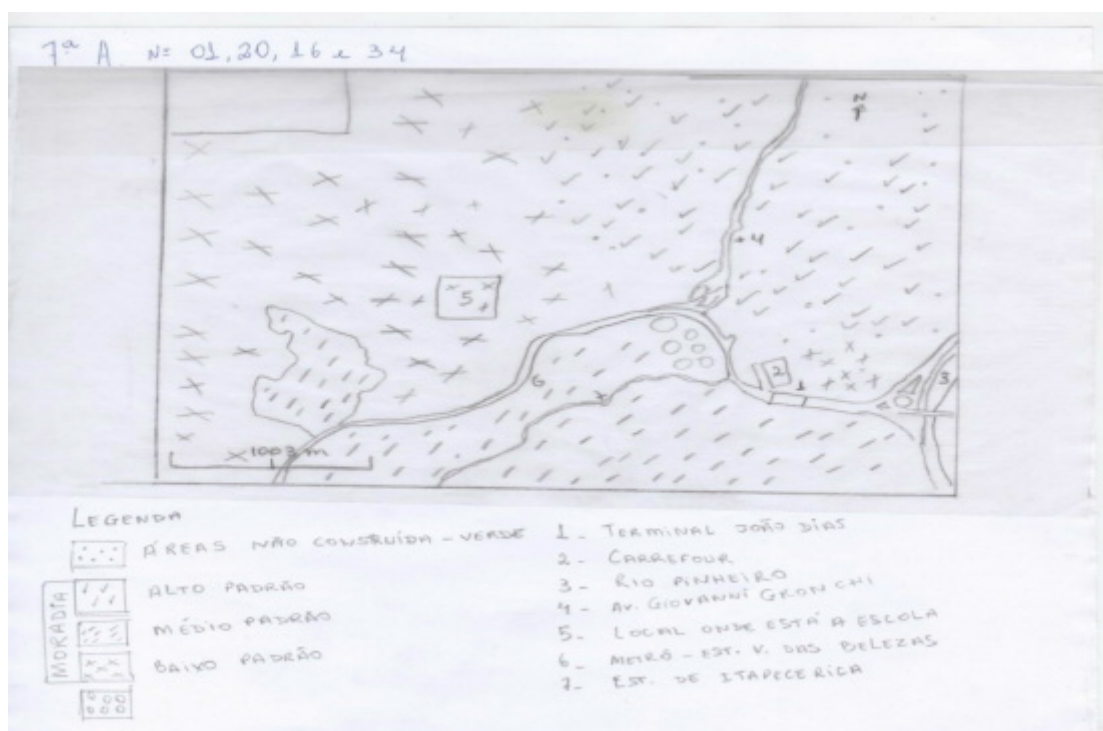 7ª A Nº 01, 20, 16 e 34
N
4
5
2
1
3
6
1003 m
LEGENDA
ÁREAS NÃO CONSTRUÍDA - VERDE
MORADIA
ALTO PADRÃO
MÉDIO PADRÃO
BAIXO PADRÃO
1- TERMINAL JOÃO DIAS
2- CARREFOUR
3- RIO PINHEIRO
4- AV. GIOVANNI GRONCHI
5- LOCAL ONDE ESTÁ A ESCOLA
6- METRÔ - EST. V. DAS BELEZAS
7- EST. DE ITAPECERICA